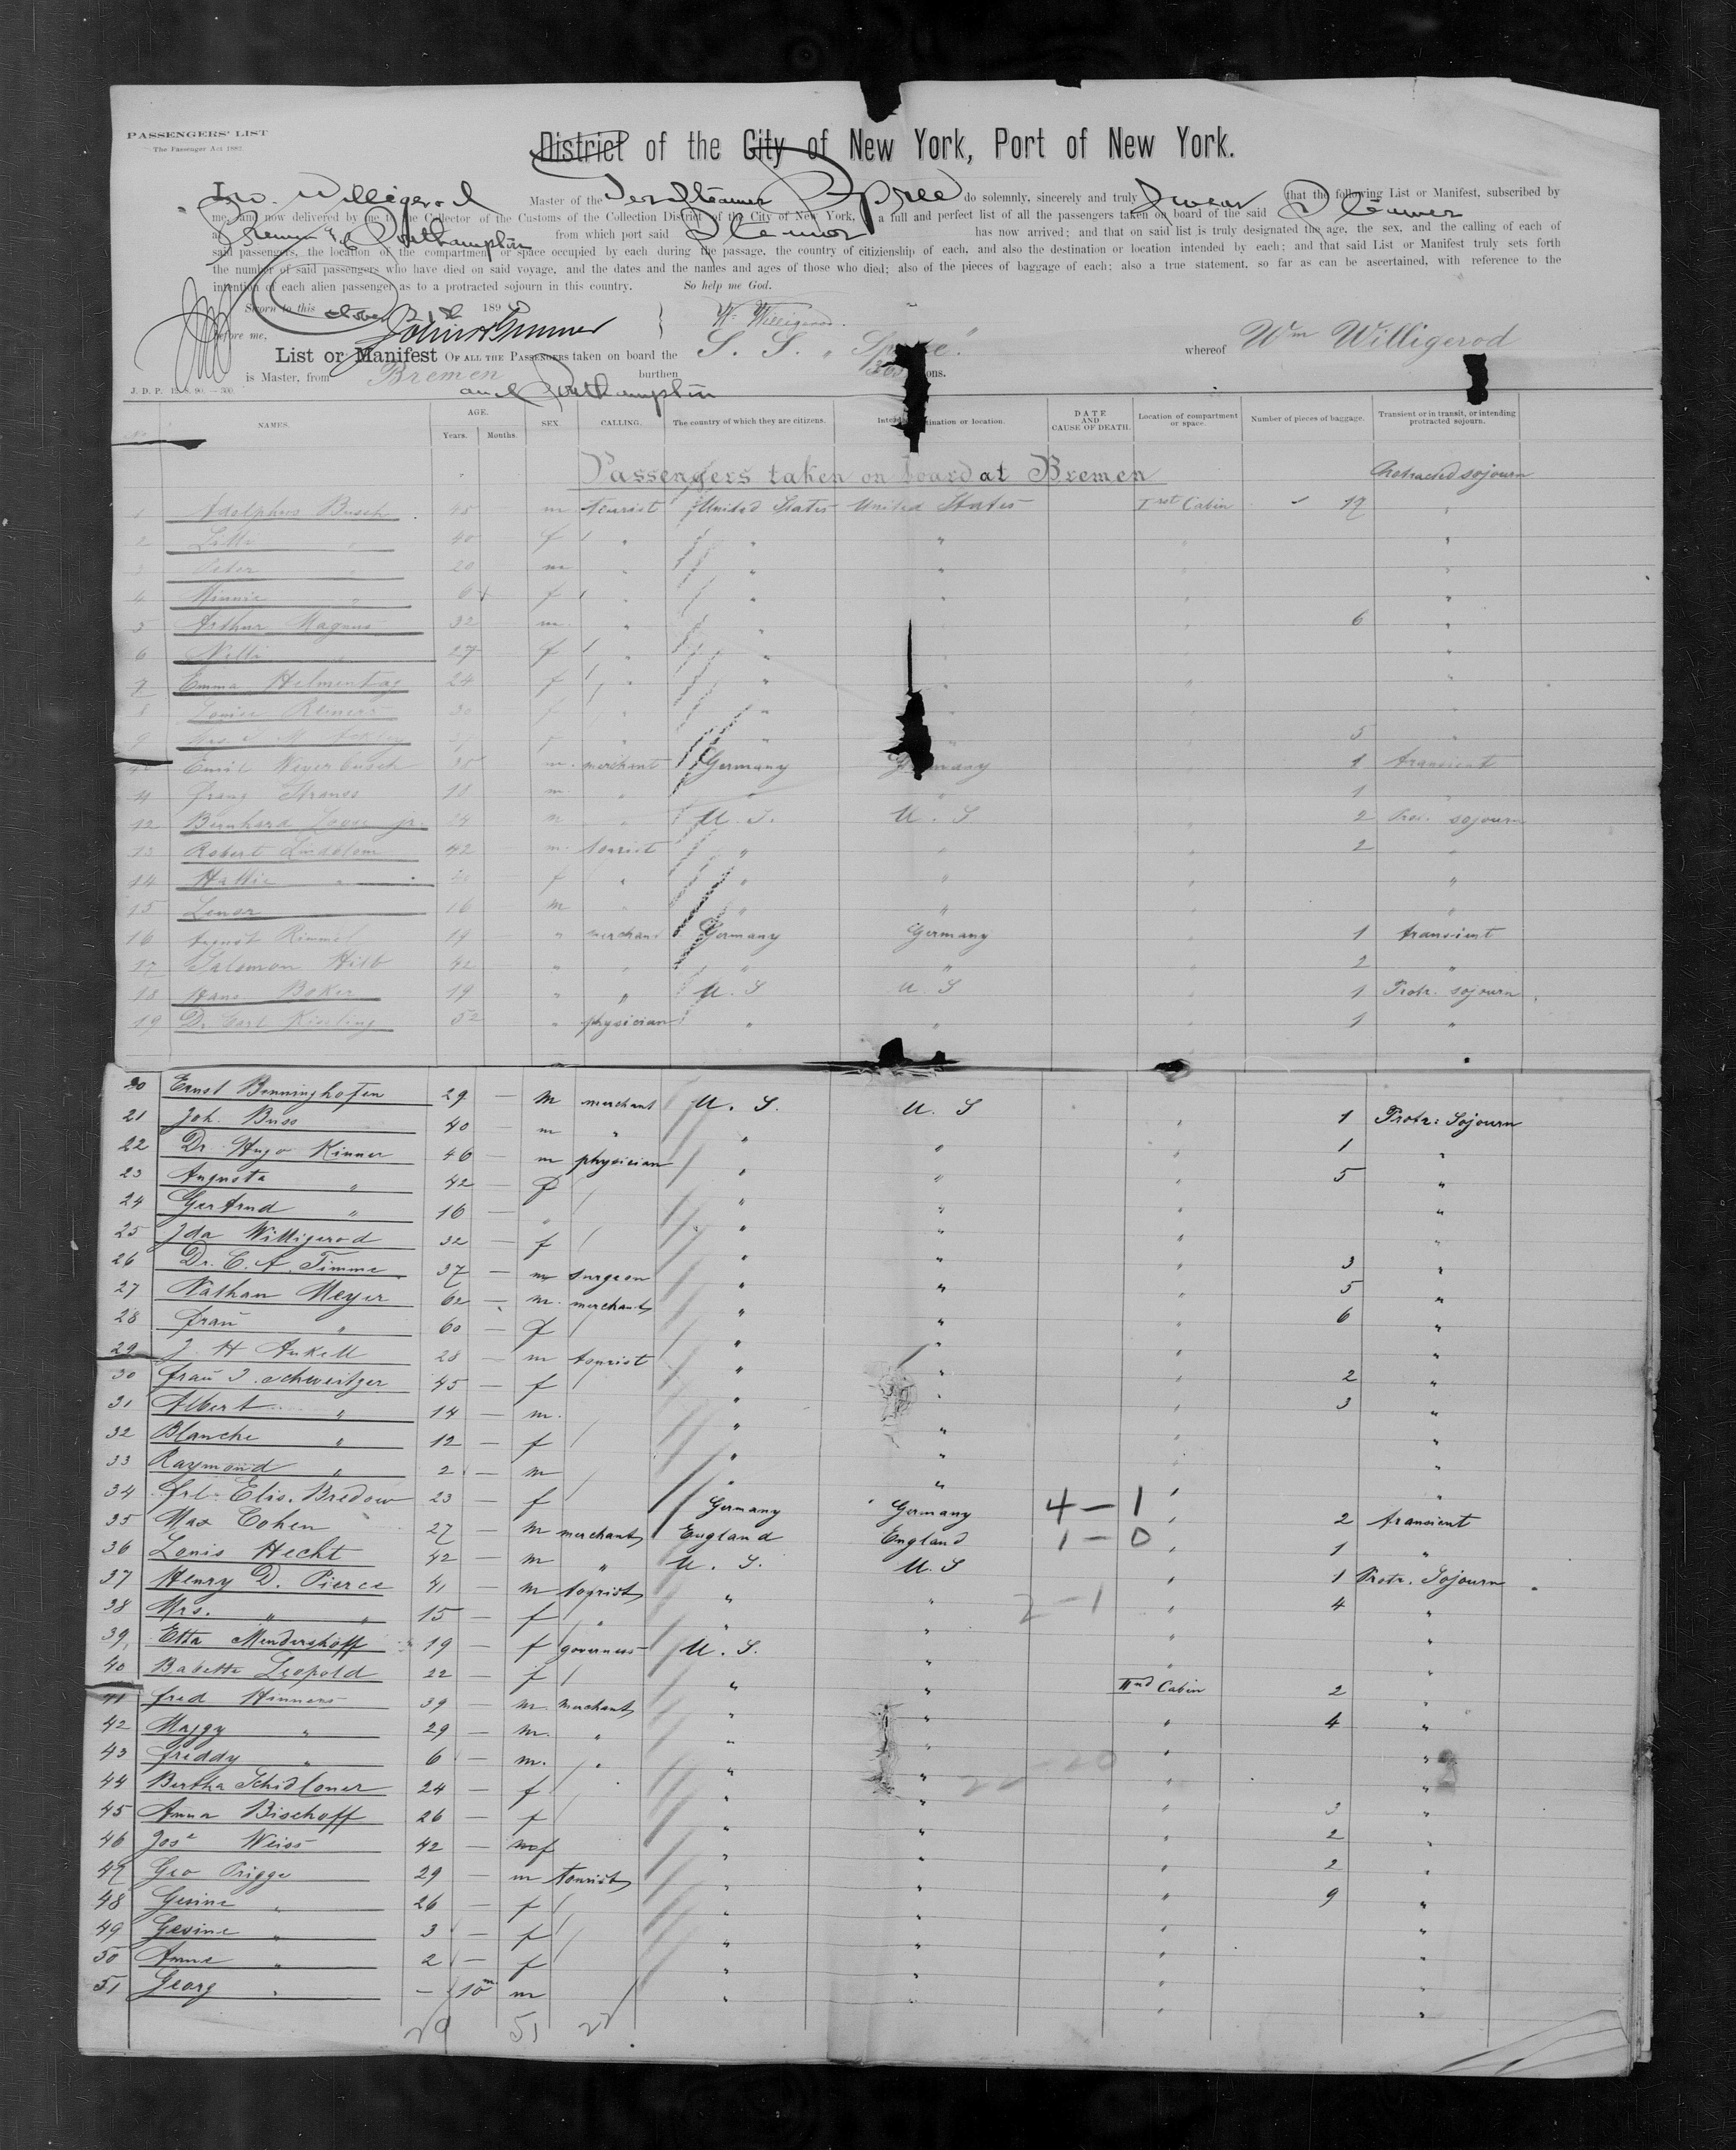 PASSENGERS' LIST
The Passenger Act 1882.
District of the City of New York, Port of New York.
I, W. Willigerod Master of the Steamer Spree do solemnly, sincerely and truly swear that the following List or Manifest, subscribed by
me, and now delivered by me to the Collector of the Customs of the Collection District of the City of New York, is a full and perfect list of all the passengers taken on board of the said Steamer
at Bremen & Southampton from which port said Steamer has now arrived; and that on said list is truly designated the age, the sex, and the calling of each of
said passengers, the location of the compartment or space occupied by each during the passage, the country of citizienship of each, and also the destination or location intended by each; and that said List or Manifest truly sets forth
the number of said passengers who have died on said voyage, and the dates and the names and ages of those who died; also of the pieces of baggage of each; also a true statement, so far as can be ascertained, with reference to the
intention of each alien passenger as to a protracted sojourn in this country. So help me God.
Sworn to this October 189
before me, W. Willigerod.
List or Manifest OF ALL THE PASSENGERS taken on board the S. S. "Spree" whereof Wm Willigerod
is Master, from Bremen burthen tons.
and Southampton
J. D. P.
NAMES. AGE. Years. Months. SEX. CALLING. The country of which they are citizens. Intended destination or location. DATE AND CAUSE OF DEATH. Location of compartment or space. Number of pieces of baggage. Transient or in transit, or intending protracted sojourn.
Passengers taken on board at Bremen Protracted sojourn
1 Adolphus Busch 45 m tourist United States United States Ist Cabin 17 "
2 Lilli " 40 f " " " " "
3 Peter " 20 m " " " " "
4 Minnie " 6 f " " " " "
5 Arthur Magnus 32 m " " " " 6 "
6 Nelli " 27 f " " " " "
7 Emma Helmentag 24 f " " " " "
8 Louise Reiners 30 f " " " "
9 Mrs. f " " " 5 "
10 Emil Meyerbusch 35 m. merchant Germany Germany 1 transient
11 Franz Strauss 18 m " " " 1 "
12 Bernhard Loewe jr. 24 m " U. S. U. S " 2 Prot. sojourn
13 Robert Lindblom 42 m. tourist " " 2 "
14 Hattie " f " " " " "
15 Lenor 16 m " " " " "
16 August Rimmel 19 " merchant Germany Germany " 1 transient
17 Salomon Hilb 42 " " " " " 2 "
18 Hans Boker 19 " " U. S U. S " 1 Protr. sojourn
19 Dr. Carl Kiesling 52 " physician " " " 1 "
20 Ernst Benninghofen 29 — m merchant U. S. U. S " 1 Protr: Sojourn
21 Joh. Buss 40 m " " " " 1 "
22 Dr. Hugo Kinner 46 — m physician " " " 5 "
23 Augusta " 42 — f " " " "
24 Gertrud " 16 — " " " " "
25 Ida Willigerod 32 — f " " " 3 "
26 Dr. C. A. Timme 37 — m surgeon " " " 5 "
27 Nathan Meyer 62 m. merchant " " " 6 "
28 Frau " 60 — f " " " "
29 J. H. Ankell 28 — m tourist " " " 2 "
30 Frau J. Schweitzer 45 — f " " " 3 "
31 Albert " 14 — m. " " " "
32 Blanche " 12 — f " " " "
33 Raymond " 2 — m " " " "
34 Frl. Elis. Bredow 23 — f Germany Germany 4 — 1 " 2 transient
35 Max Cohen 27 — m merchant England England 1 — 0 " 1 "
36 Louis Hecht 42 — m " U. S. U. S " 1 Protr. Sojourn
37 Henry D. Pierce 41 — m tourist " " 2 — 1 " 4 "
38 Mrs. " " 15 — f " " " " "
39 Etta Mendershoff 19 — f governess U. S. " " "
40 Babette Leopold 22 — f " " IInd Cabin 2 "
41 Fred Hinnens 39 m. merchant " " " 4 "
42 Maggy " 29 — m. " " " " "
43 Freddy " 6 — m. " " " " "
44 Bertha Schidloner 24 — f " " " 3 "
45 Anna Bischoff 26 — f " " " 2 "
46 Jose Weiss 42 — f " " " 2 "
47 Geo Prigge 29 — m tourist " " " 9 "
48 Gesine " 26 — f " " " "
49 Gesine " 3 — f " " " "
50 Anna " 2 — f " " " "
51 Georg " — 10m m " " " "
29 51 22